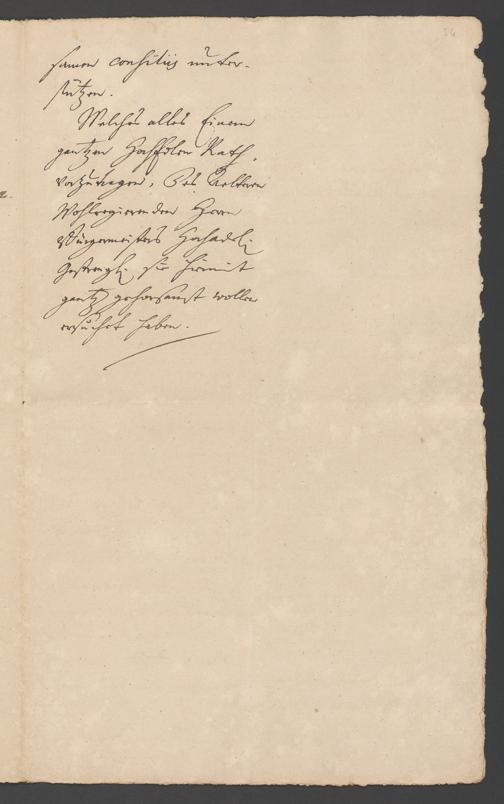 samen consiliis unter-
stützen.
Welches alles Einem
gantzen HochEdlen Rath,
vorzutragen, Des Aeltern
Wohlregierenden Herrn
Bürgermeisters Hochadel.
Gestrengl. sie hiemit
gantz gehorsamst wollen
ersuchet haben.